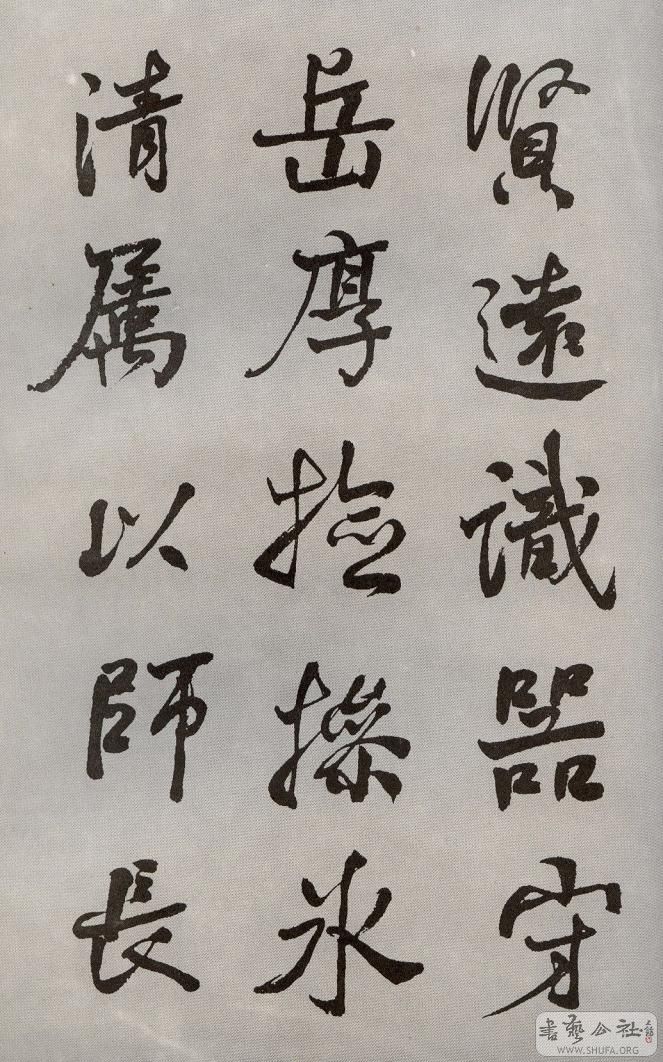 賢遠識器守
岳厚撿操氷
清屬以師長
書藝公社
WWW.SHUFA.ORG